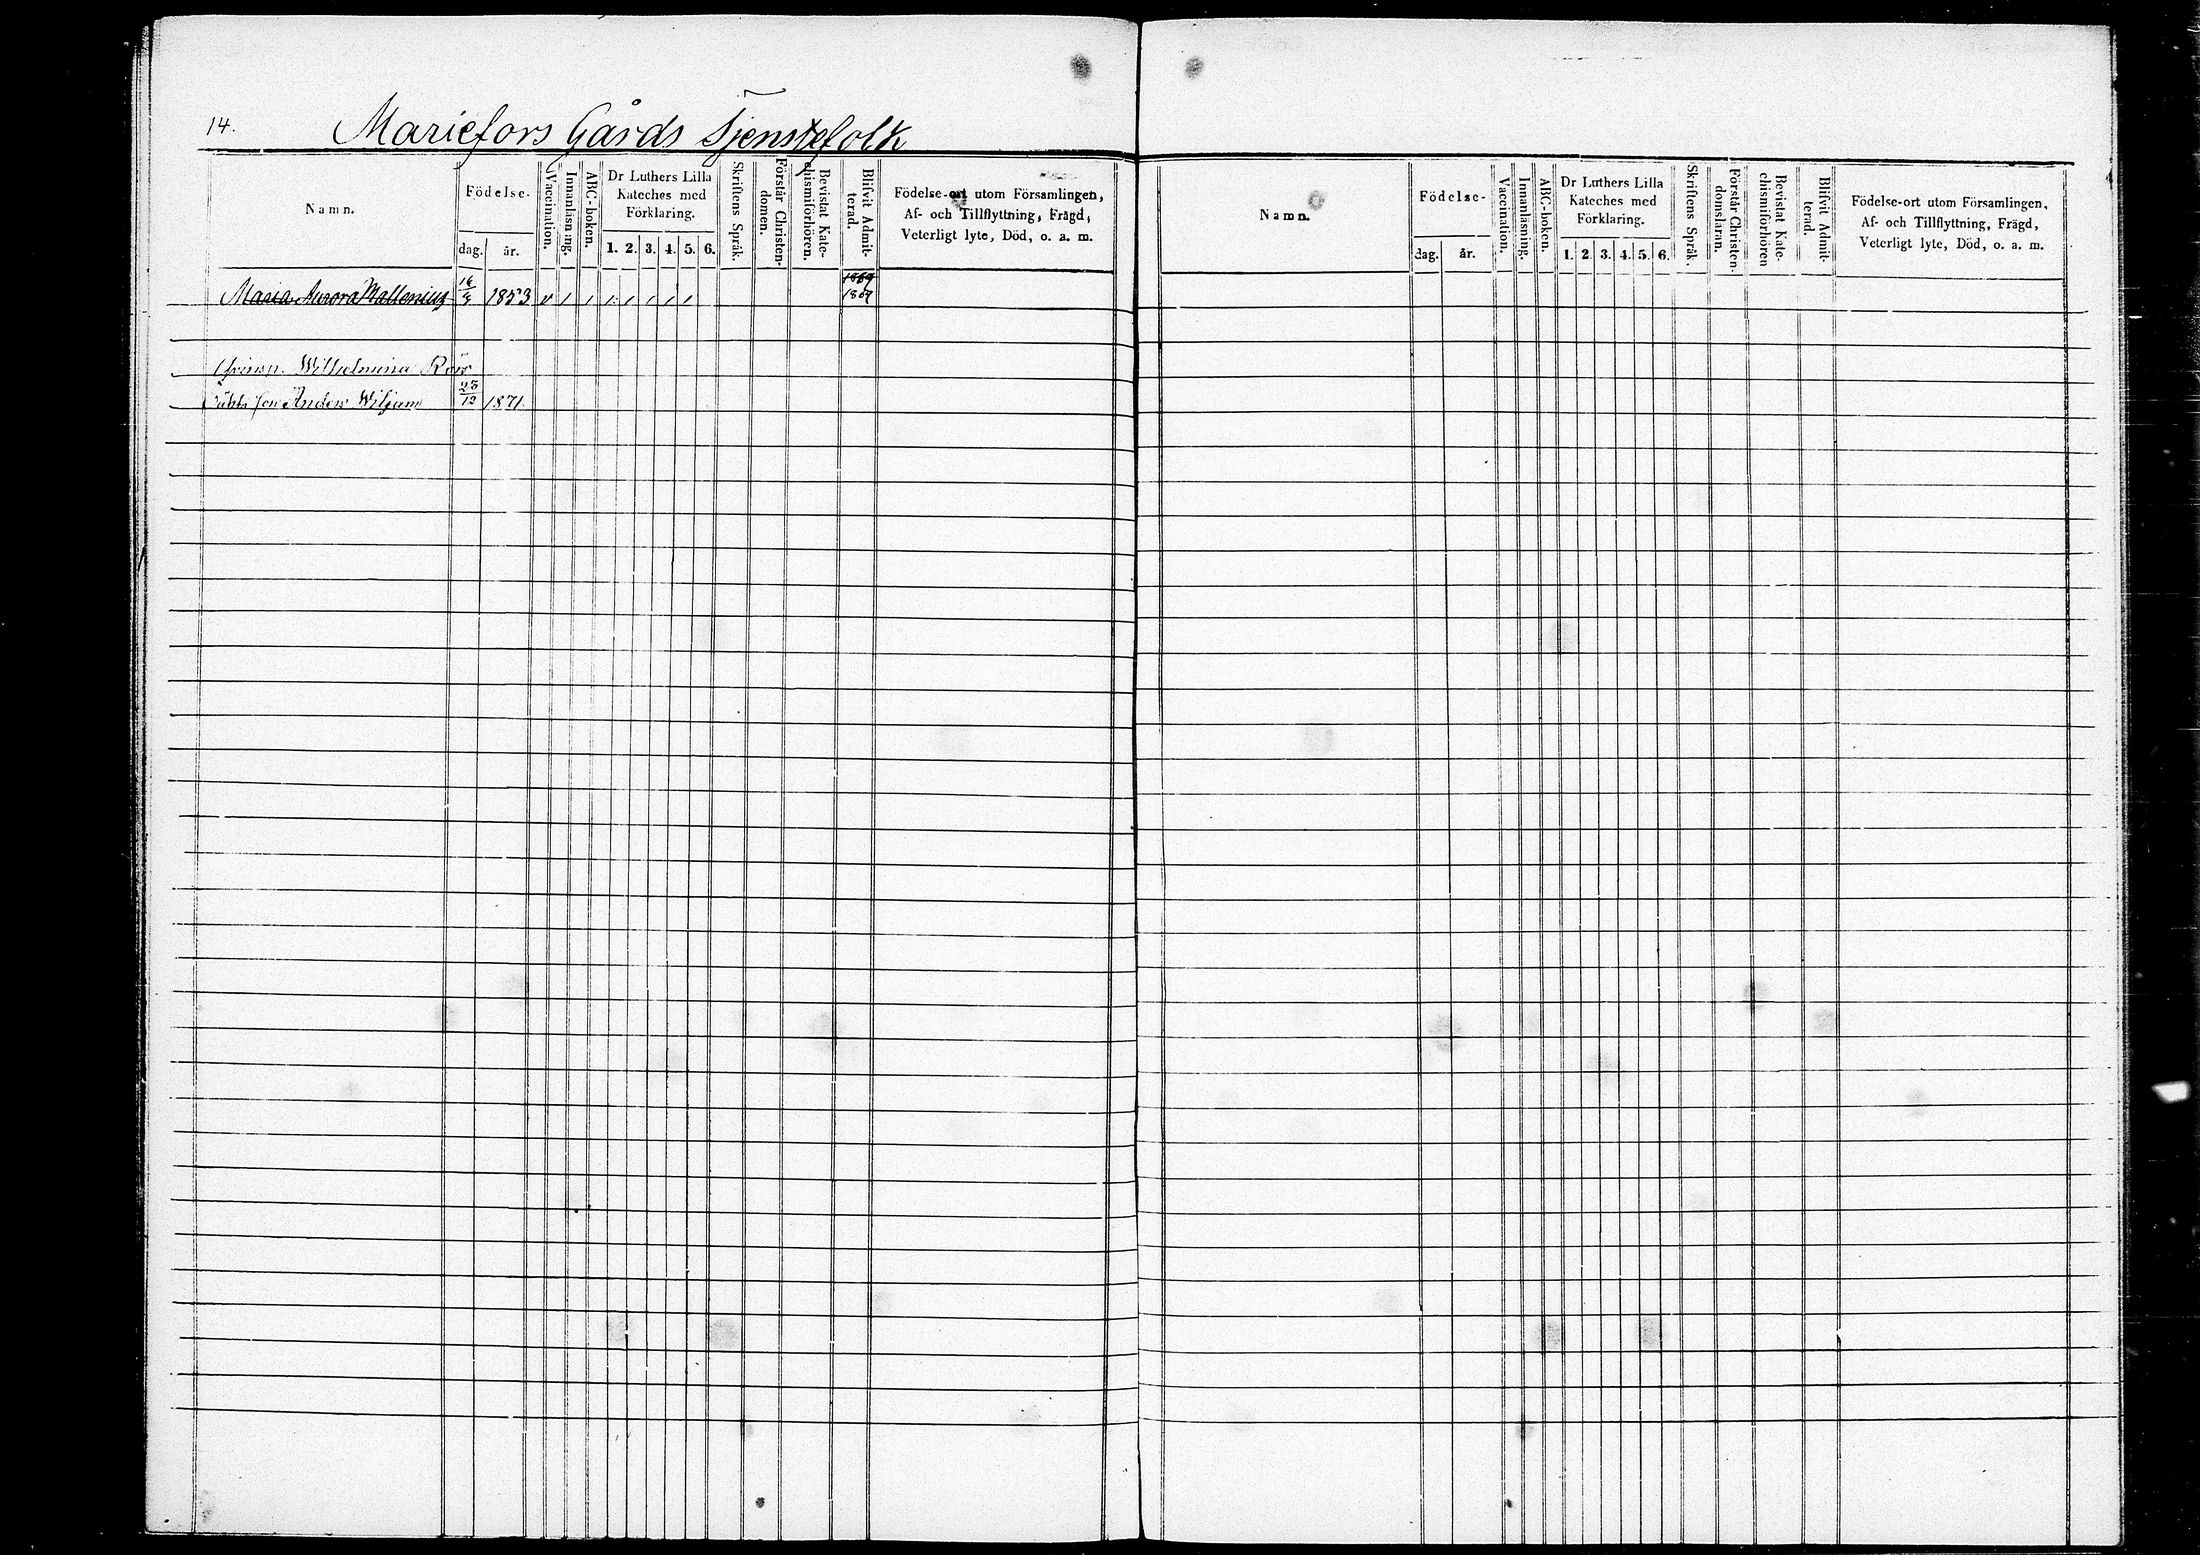 14.
Mariefors Gårds Tjenstefolk
Namn.
Födelse-
dag.
år.
Vaccination.
Innanläsning.
ABC-boken.
Dr Luthers Lilla
Kateches med
Förklaring.
1. 2. 3. 4. 5. 6.
Skriftens Språk.
Förstår Christen-
domen.
Bevistat Kate-
chismiförhören.
Blifvit Admit-
terad.
Födelse-ort utom Församlingen,
Af- och Tillflyttning, Frägd,
Veterligt lyte, Död, o. a. m.
Maria Aurora Wallenius 1853
Wilhelmina
son Anders Wiljam 23/12 1871.
Namn.
Födelse-
dag.
år.
Vaccination.
Innanläsning.
ABC-boken.
Dr Luthers Lilla
Kateches med
Förklaring.
1. 2. 3. 4. 5. 6.
Skriftens Språk.
Förstår Christen-
domsläran.
Bevistat Kate-
chismiförhören
Blifvit Admit-
terad.
Födelse-ort utom Församlingen,
Af- och Tillflyttning, Frägd,
Veterligt lyte, Död, o. a. m.